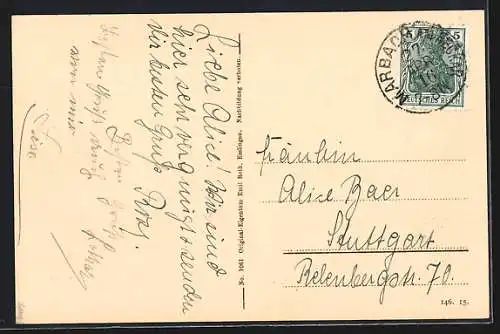 Liebe Alice! Wir sind
hier sehr vergnügt + senden
Dir besten Gruß
Rosy.
Besten Gruß
Lise
No. 1061 Original-Eigentum Emil Roth, Esslingen. Nachbildung verboten.
MARBACH
5 5
DEUTSCHES REICH
Fräulein
Alice Baer
Stuttgart
Relenbergstr 70.
146. 13.